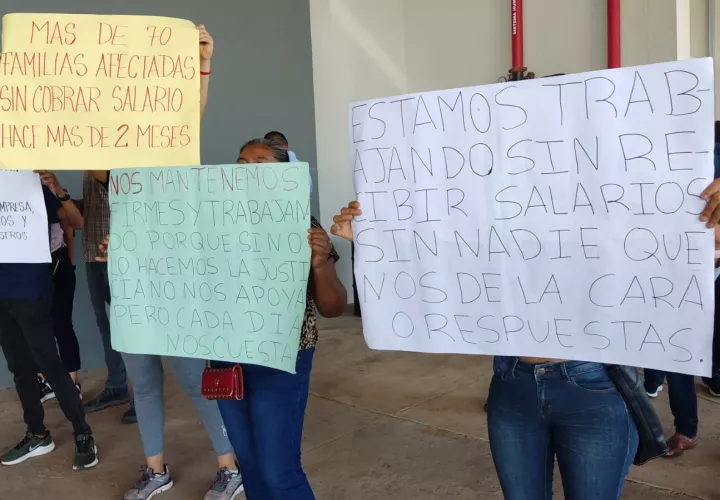 MAS DE 70
FAMILIAS AFECTADAS
SIN COBRAR SALARIO
HACE MAS DE 2 MESES
MPRESA,
OS Y
STROS
NOS MANTENEMOS
FIRMES Y TRABAJAN
DO PORQUE SI NO
LO HACEMOS LA JUSTI
CIA NO NOS APOYA
PERO CADA DIA
NOS CUESTA
ESTAMOS TRAB-
AJANDO SIN RE-
CIBIR SALARIOS
SIN NADIE QUE
NOS DE LA CARA
O RESPUESTAS.